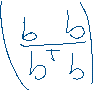 b b
T
b b